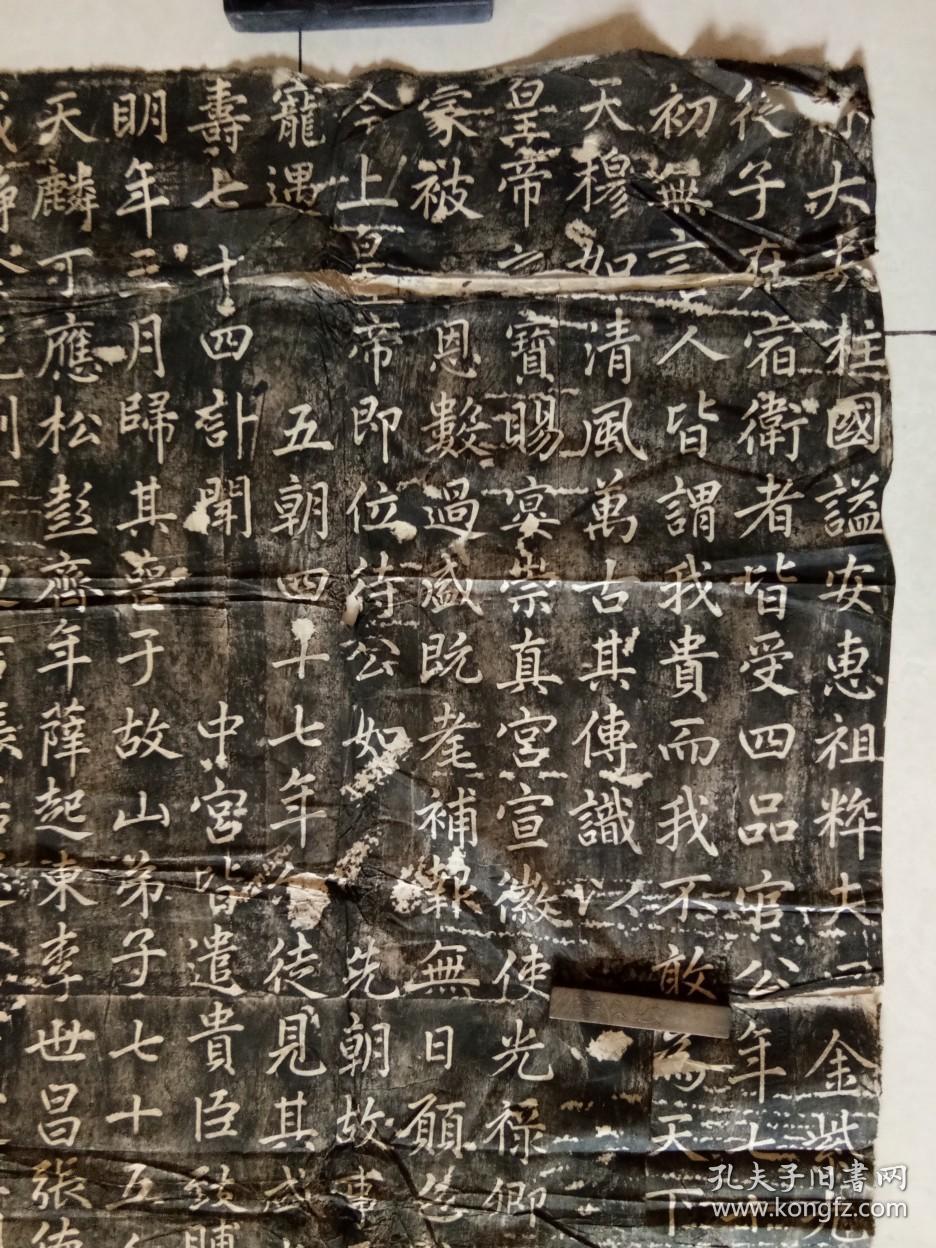 大夫柱國諡安惠祖粹夫金紫光
從子在宿衛者皆受四品官公年七十
初無言人皆謂我貴而我不敢為天下
天穆如清風萬古其傳識以人
皇帝寶賜宴崇真宮宣徽使光祿卿
家被恩數過盛既耄補報無日願
今上皇帝即位待公如先朝故事
寵遇五朝四十七年徒見其盛
壽七十四訃聞中宮皆遣貴臣致賻
明年三月歸其喪于故山弟子七十五人
天麟可應松彭齊年薛起東李世昌張德
孔夫子旧书网
www.kongfz.com